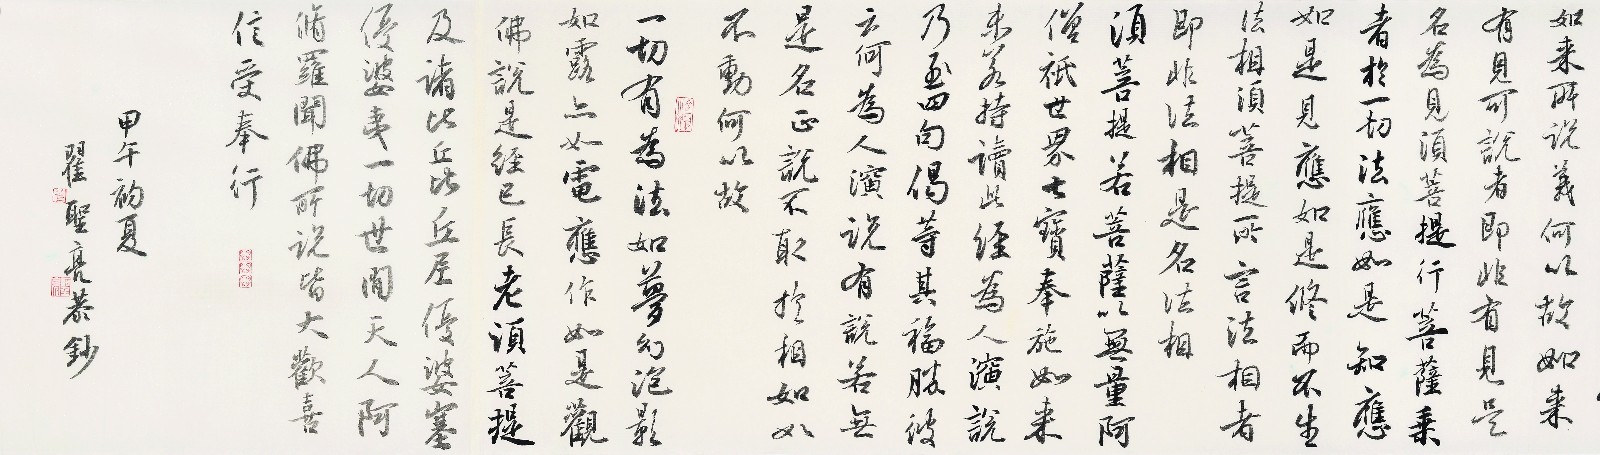 如来所说義何以故如来
有見可說者即非有見是
名為見須菩提行菩薩乘
者於一切法應如是知應
如是見應如是修而不生
法相須菩提所言法相者
即非法相是名法相
須菩提若菩薩以無量阿
僧祇世界七寶奉施如来
未若持讀此經為人演說
乃至四句偈等其福勝彼
云何為人演说有說若無
是名正說不取於相如如
不動何以故
一切有為法如夢幻泡影
如露亦如電應作如是觀
佛說是經已長老須菩提
及諸比丘比丘尼優婆塞
優婆夷一切世間天人阿
脩羅聞佛所说皆大歡喜
信受奉行
甲午初夏
翟聖亮恭鈔